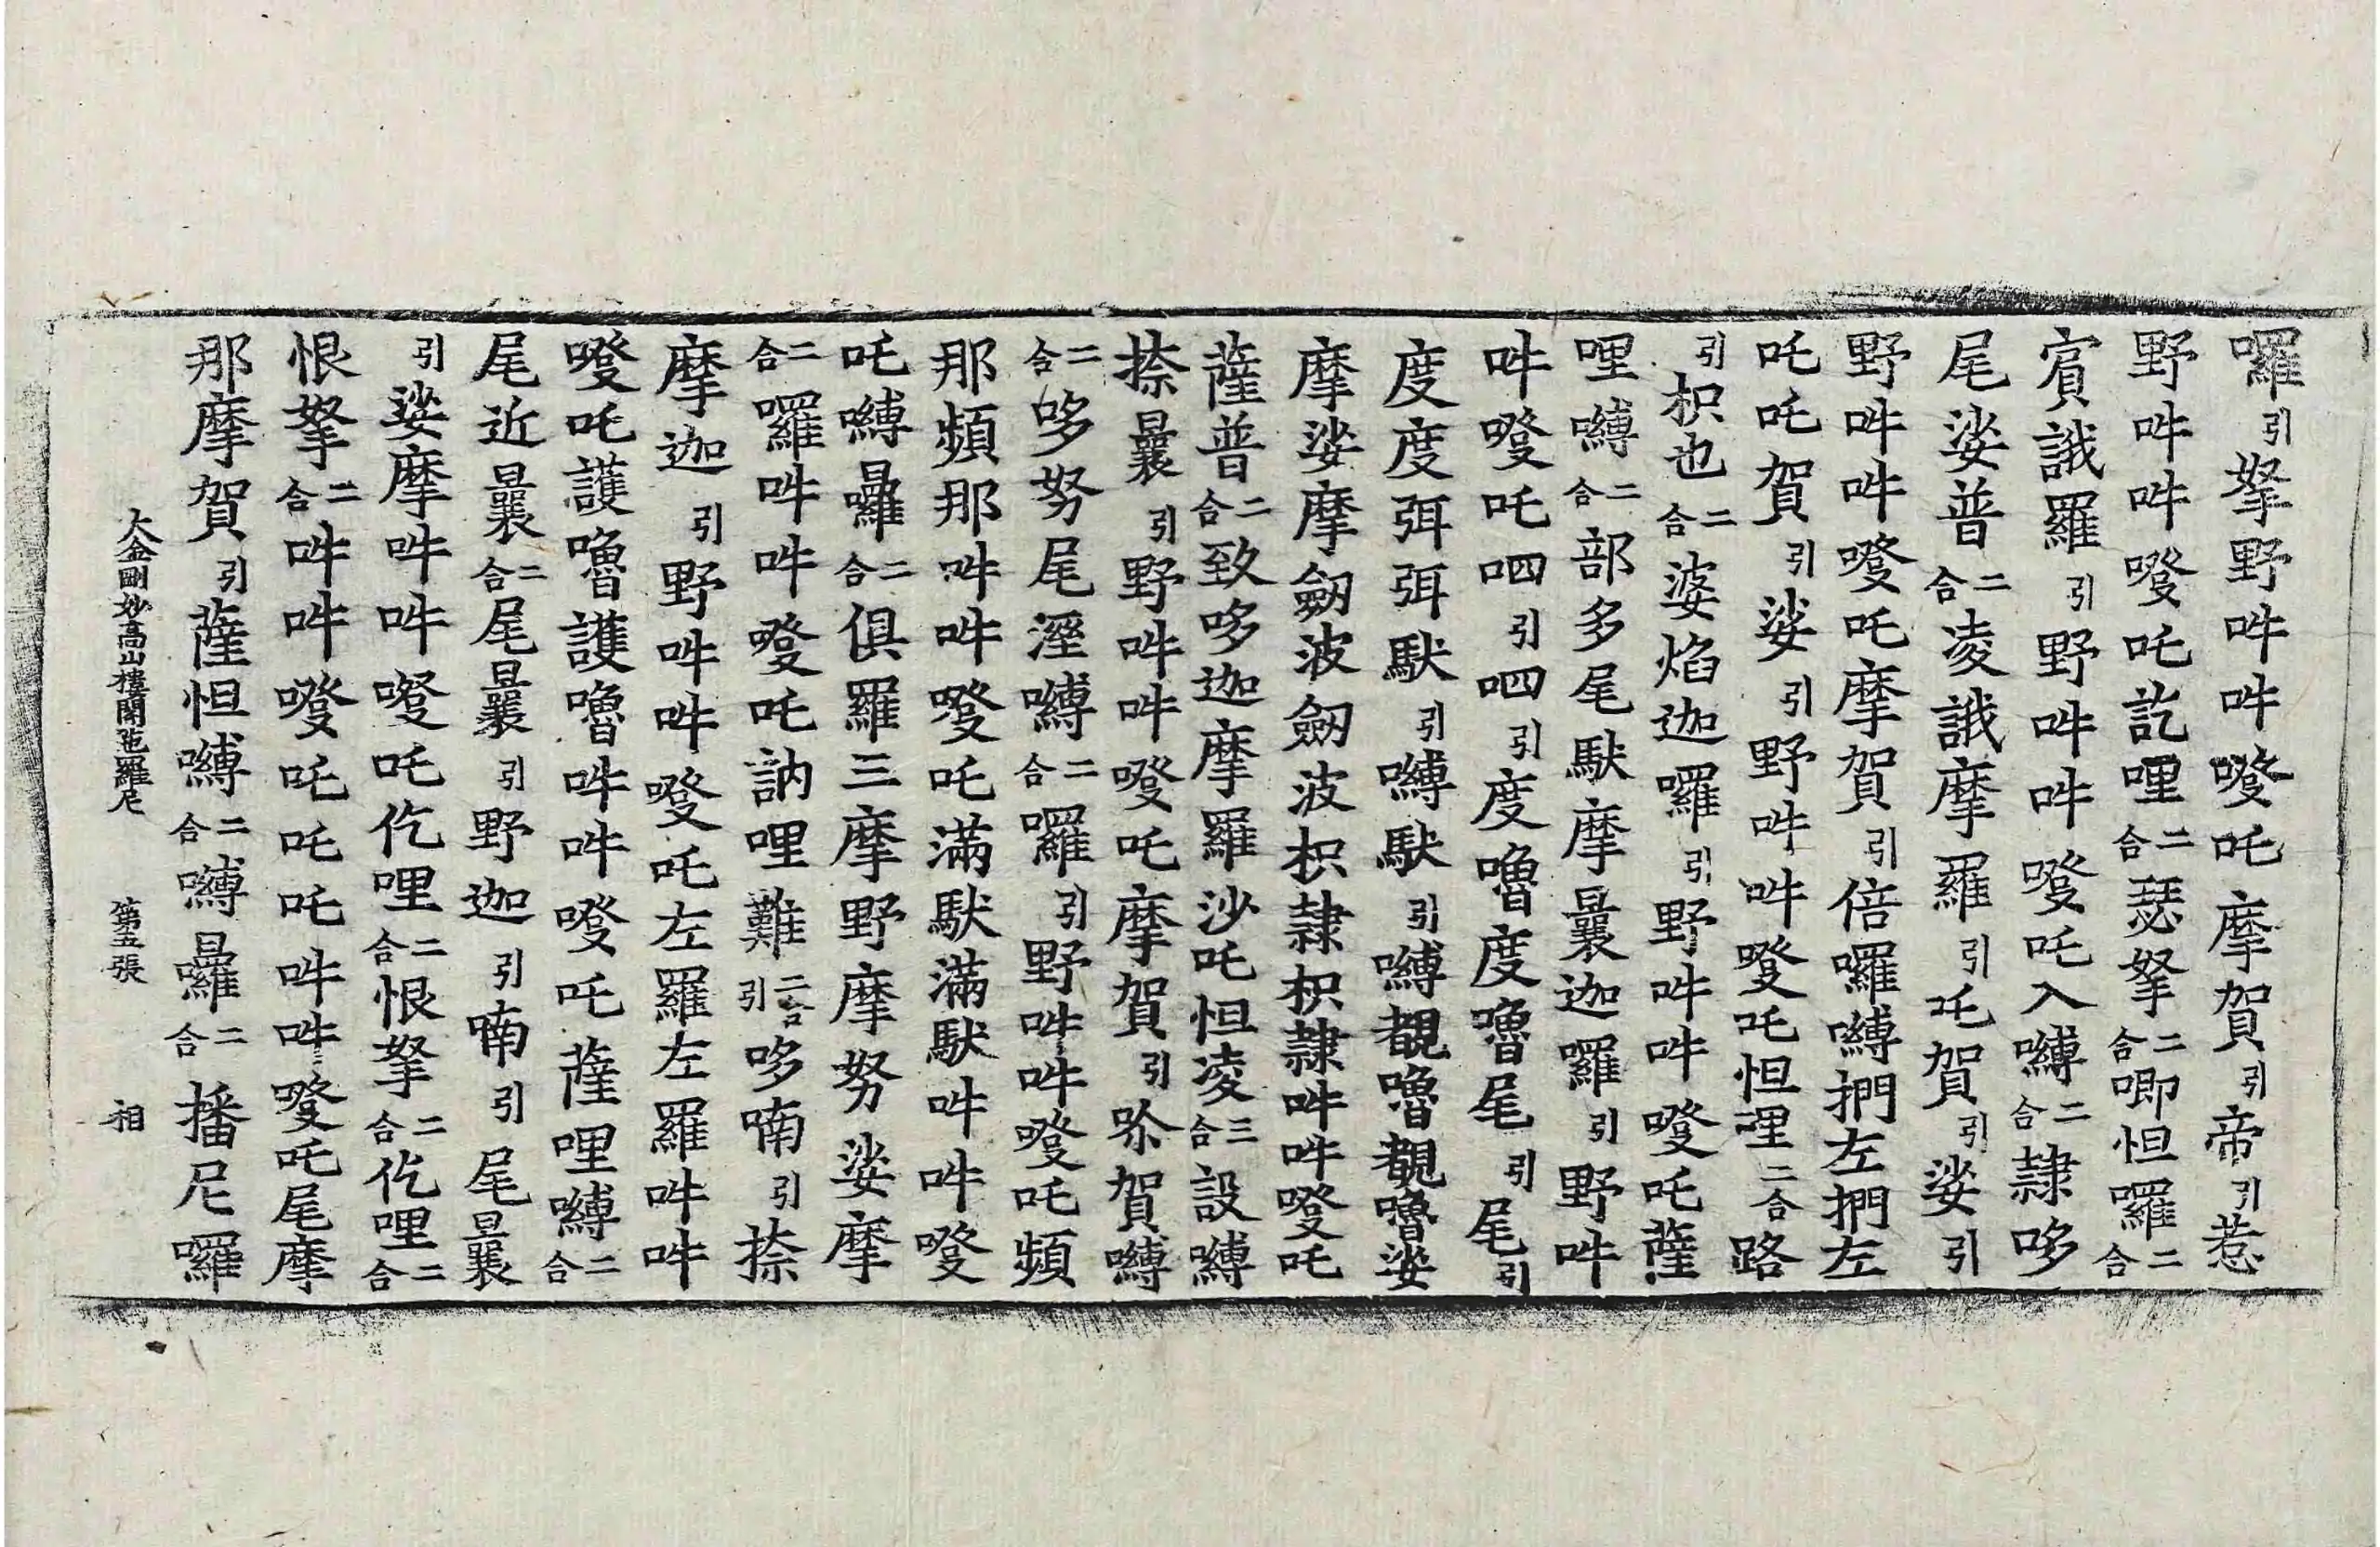 囉引拏野吽吽癹吒摩賀引帝引惹
野吽吽癹吒訖哩二合瑟拏二合唧怛囉二合
賓誐羅引野吽吽癹吒入嚩二合隷哆
尾娑普二合凌誐摩羅引吒賀引娑引
野吽吽癹吒摩賀引倍囉嚩捫左捫左
吒吒賀引娑引野吽吽癹吒怛哩二合路
引枳也二合婆焰迦囉引野吽吽癹吒薩
哩嚩二合部多尾馱摩曩迦囉引野吽
吽癹吒呬引呬引度嚕度嚕尾引尾引
度度弭弭馱引嚩馱引嚩覩嚕覩嚕娑
摩娑摩劒波劒波枳隷枳隷吽吽癹吒
薩普二合致哆迦摩羅沙吒怛凌三合設嚩
捺曩引野吽吽癹吒摩賀引尒賀嚩
二合哆努尾溼嚩二合囉引野吽吽癹吒頻
那頻那吽吽癹吒滿馱滿馱吽吽癹
吒嚩曩囉二合俱羅三摩野摩努娑摩
二合囉吽吽癹吒訥哩難二合引哆喃引捺
摩迦引野吽吽癹吒左羅左羅吽吽
癹吒護嚕護嚕吽吽癹吒薩哩嚩二合
尾近曩二合尾曩引野迦引喃引尾曩
引娑摩吽吽癹吒仡哩二合恨拏二合仡哩二合
恨拏二合吽吽癹吒吒吒吽吽癹吒尾摩
那摩賀引薩怛嚩二合嚩曩囉二合播尼囉
大金剛妙高山樓閣陁羅尼 第五張 相